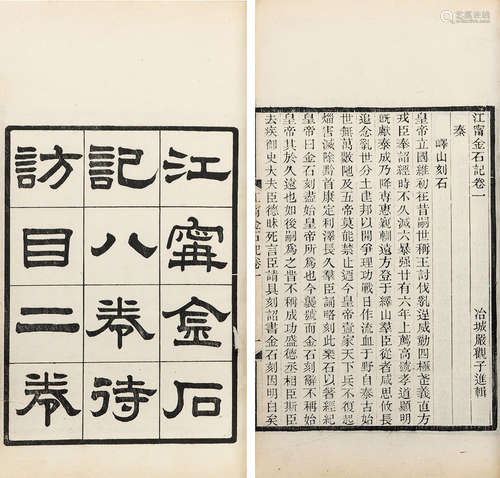 江甯金石
記八卷待
訪目二卷
江甯金石記卷一
冶城嚴觀子進輯
秦
嶧山刻石
皇帝立國維初在昔嗣世稱王討伐亂逆威動四極武義直方
戎臣奉詔經時不久滅六暴強廿有六年上薦高號孝道顯明
既獻泰成乃降專惠親巡遠方登于繹山羣臣從者咸思攸長
追念亂世分土建邦以開爭理功戰日作流血于野自泰古始
世無萬數陁及五帝莫能禁止迺今皇帝壹家天下兵不復起
災害滅除黔首康定利澤長久羣臣誦略刻此樂石以著經紀
皇帝曰金石刻盡始皇帝所爲也今襲號而金石刻辭不稱始
皇帝其於久遠也如後嗣爲之者不稱成功盛德丞相臣斯臣
去疾御史大夫臣德昧死言臣請具刻詔書金石刻因明白矣